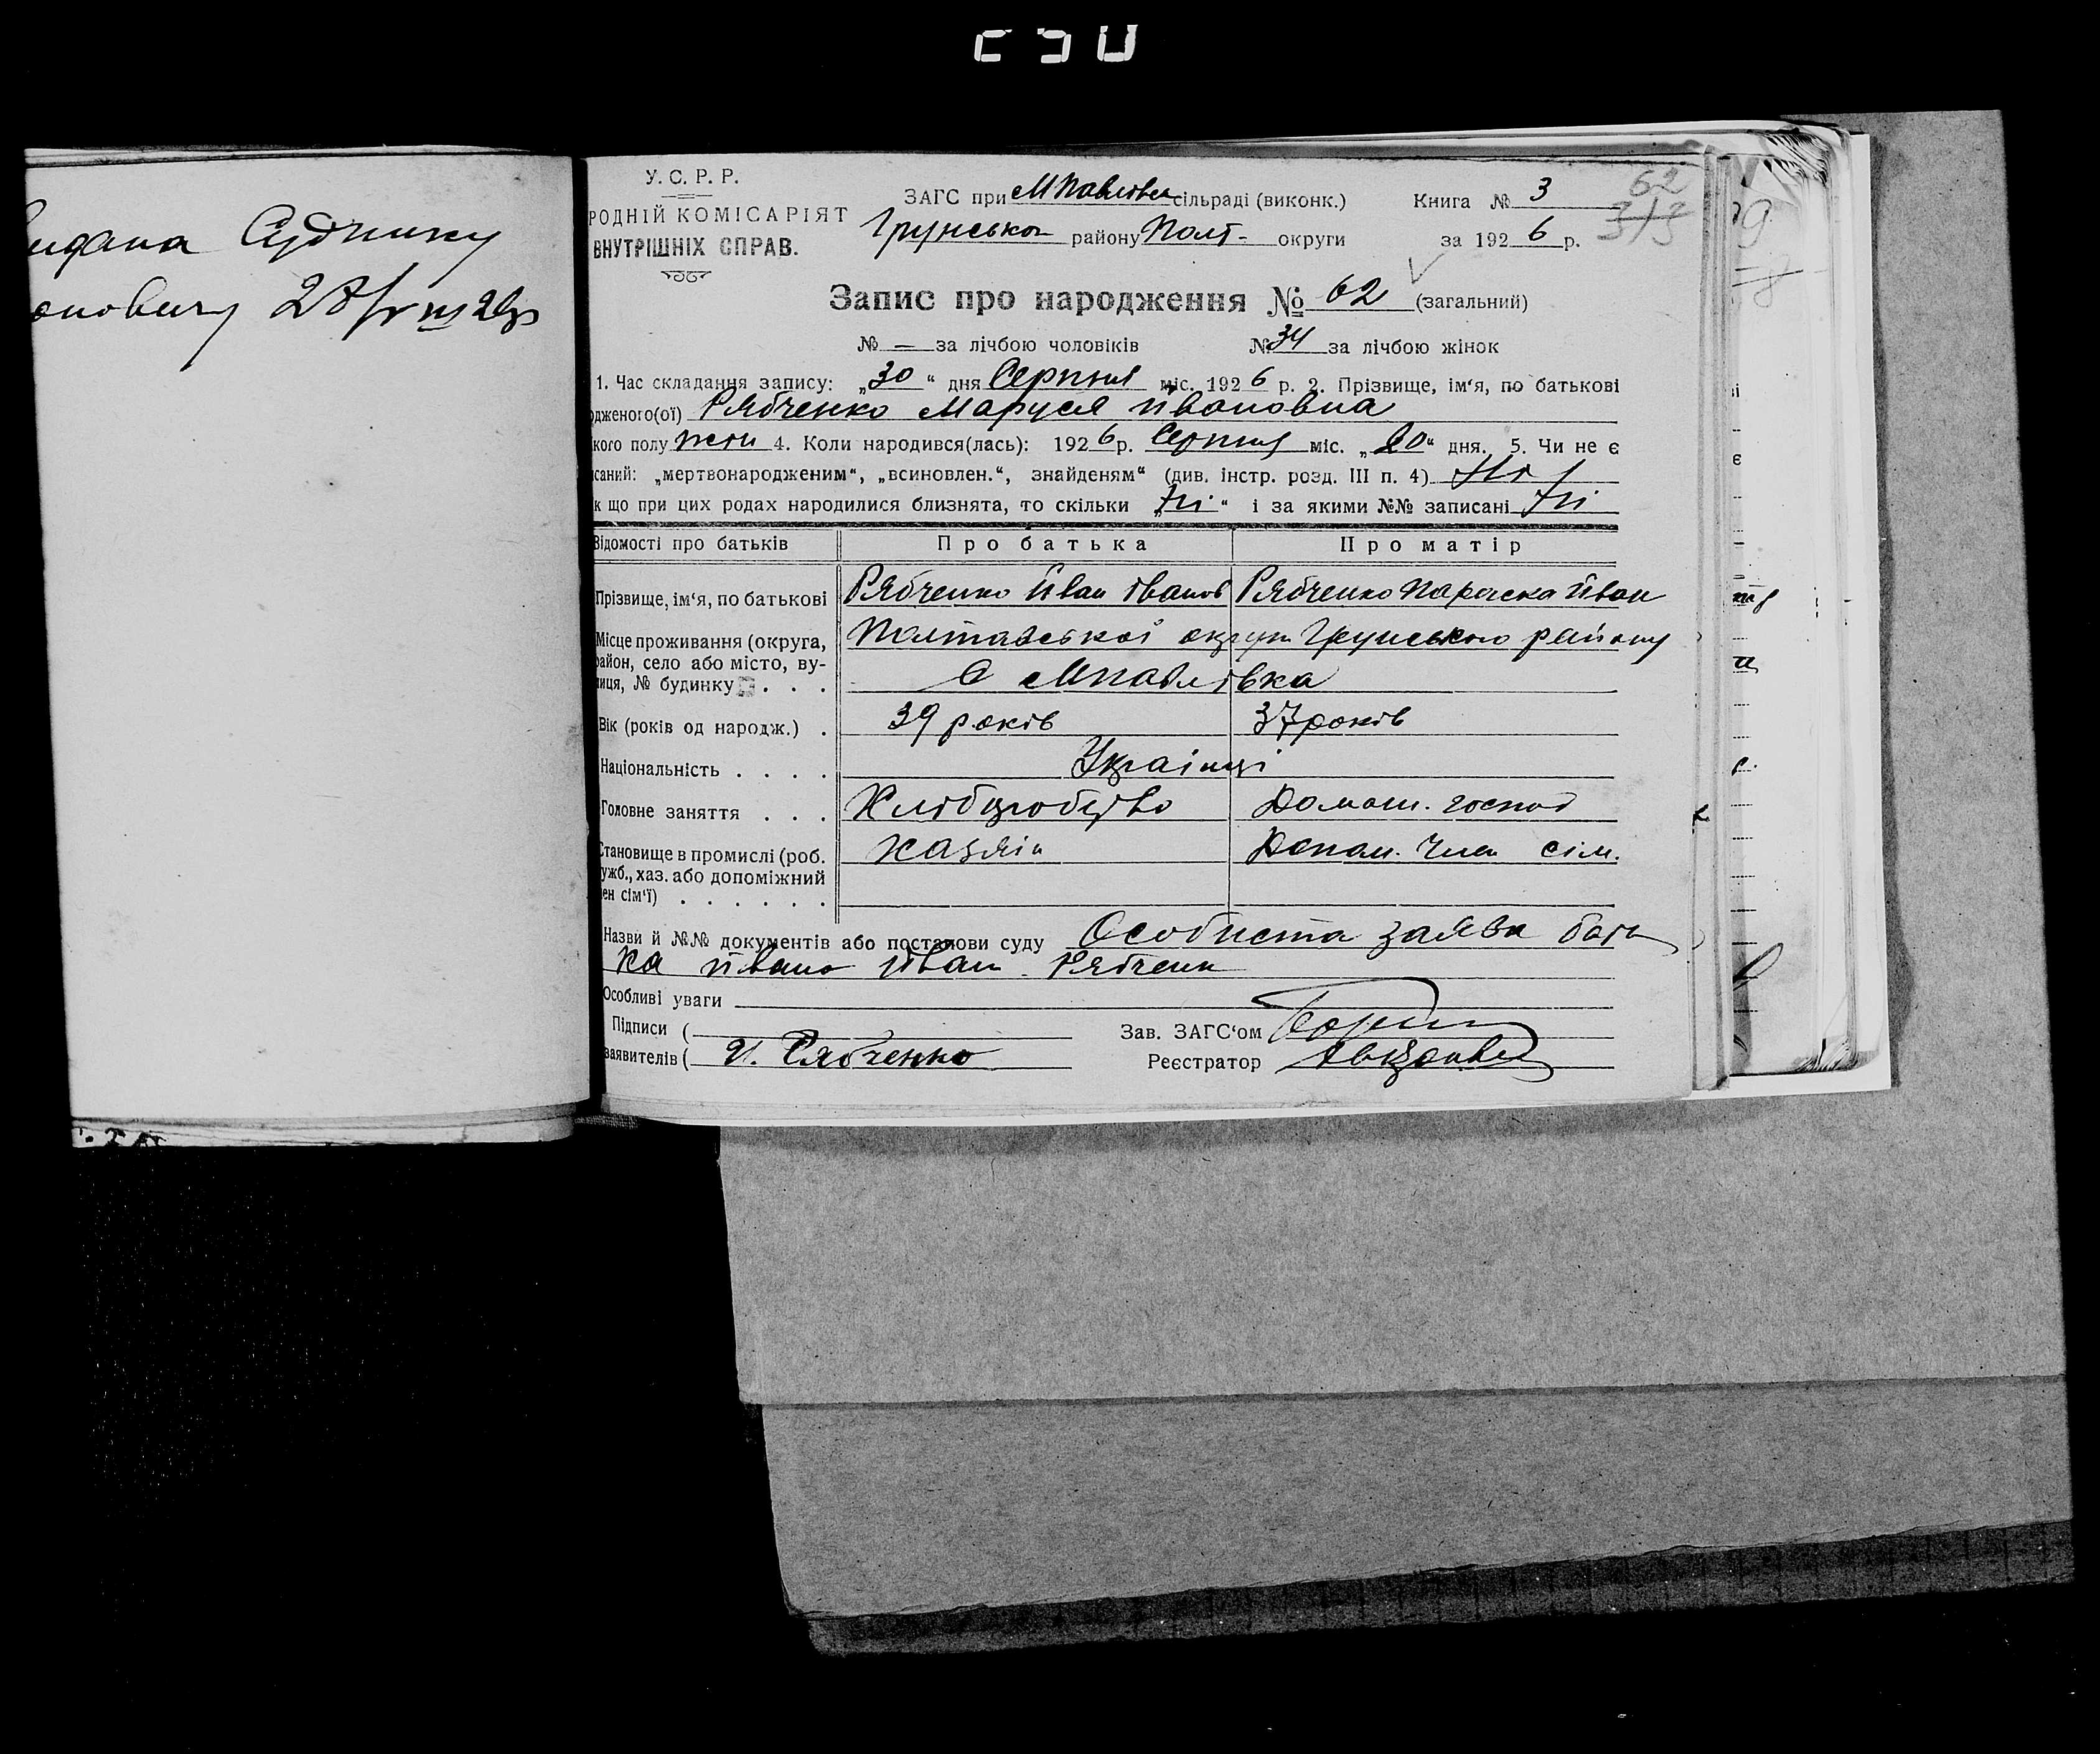 Судчику
У. С. Р. Р.
РОДНІЙ КОМІСАРІЯТ
ВНУТРІШНІХ СПРАВ.
ЗАГС при МПавлівск сільраді (виконк.)
Грунсько району Полт- округи
Книга № 3
за 1926 р.
62
313
Запис про народження № 62 (загальний)
№ — за лічбою чоловіків № 34 за лічбою жінок
1. Час складання запису: „30“ дня Серпня міс. 1926 р. 2. Прізвище, ім‘я, по батькові
одженого(ої) Рябченко Маруся Ивановна
кого полу жен 4. Коли народився(лась): 1926 р. Серпня міс. „20“ дня. 5. Чи не є
исаний: „мертвонародженим“, „всиновлен.“, знайденям“ (див. інстр. розд. III п. 4) Ні
к що при цих родах народилися близнята, то скільки „ні“ і за якими №№ записані ні
Відомості про батьків Про батька Про матір
Прізвище, ім‘я, по батькові Рябченко Иван Іванов Рябченко Параска Иван
Місце проживання (округа, район, село або місто, вулиця, № будинку . . . Полтавської округи Грунського району
С МПавлівка
Вік (років од народж.) . 39 років 37 років
Національність . . . . Українці
Головне заняття . . . Хлібробство Домаш. господ
Становище в промислі (роб. Хазяін Допом. Член сім.
ужб., хаз. або допоміжний
ен сім‘ї) . . . . . .
Назви й №№ документів або постанови суду Особиста заява бать
ка Ивана Иван Рябченк
Особливі уваги
Підписи ( Зав. ЗАГС‘ом
заявителів ( И. Рябченко Реєстратор